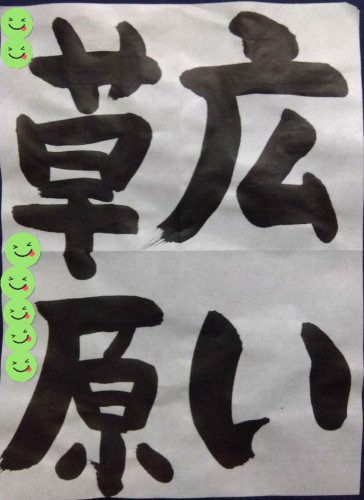 広い
草原